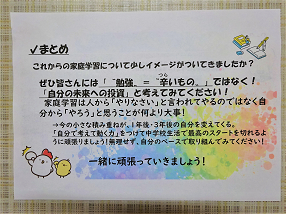 ✓まとめ
これからの家庭学習について少しイメージがついてきましたか？
ぜひ皆さんには「“勉強〟＝“辛いもの〟」ではなく！
「自分の未来への投資」と考えてみてください！
家庭学習は人から「やりなさい」と言われてやるのではなく自
分から「やろう」と思うことが何より大事！
→今の小さな積み重ねが、1年後・3年後の自分を変えてくる。
「自分で考えて動く力」をつけて中学校生活で最高のスタートを切れるよ
うに頑張りましょう！無理せず、自分のペースで取り組んでみてください！
一緒に頑張っていきましょう！